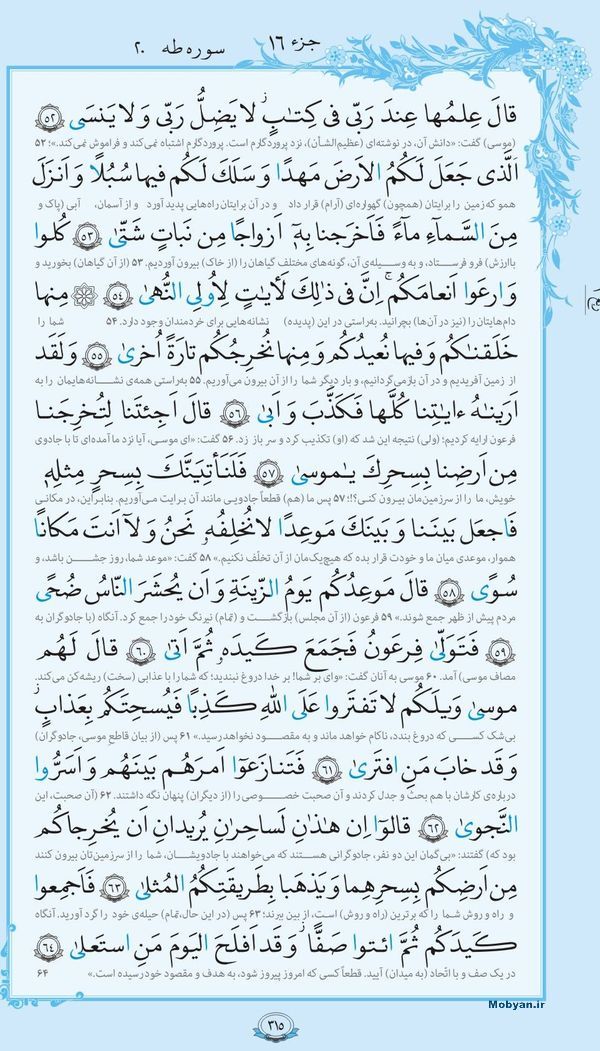 جزء ۱۶ سوره طه ۲۰
قالَ عِلمُها عِندَ رَبّی فی کِتٰبٍ ۖ لا یَضِلُّ رَبّی وَ لا یَنسَی ﴿۵۲﴾
(موسی) گفت: «دانش آن، در نوشته‌ای (عظیم‌الشأن)، نزد پروردگارم است. پروردگارم اشتباه نمی‌کند و فراموش نمی‌کند.»؛ ۵۲
اَلَّذی جَعَلَ لَکُمُ الاَرضَ مَهدًا وَ سَلَکَ لَکُم فیها سُبُلًا وَ اَنزَلَ
همو که زمین را برایتان (همچون) گهواره‌ای (آرام) قرار داد و در آن برایتان راه‌هایی پدید آورد و از آسمان، آبی (پاک و
مِنَ السَّمآءِ مآءً فَاَخرَجنا بِهٓ اَزواجًا مِن نَباتٍ شَتّیٰ ﴿۵۳﴾ کُلوا
باارزش) فرو فرستاد، و به وسیله‌ی آن، گونه‌های مختلف گیاهان را (از خاک) بیرون آوردیم. ۵۳ (از آن گیاهان) بخورید و
وَ ارعَوا اَنعامَکُم ۚ اِنَّ فی ذالِکَ لَأیاتٍ لِاُولِی النُّهیٰ ﴿۵۴﴾ مِنها
دام‌هایتان را (نیز در آن‌ها) بچرانید. به‌راستی در این (پدیده) نشانه‌هایی برای خردمندان وجود دارد. ۵۴ شما را
خَلَقنٰکُم وَ فیها نُعیدُکُم وَ مِنها نُخرِجُکُم تارَةً اُخریٰ ﴿۵۵﴾ وَ لَقَد
از زمین آفریدیم و در آن بازمی‌گردانیم، و بار دیگر شما را از آن بیرون می‌آوریم. ۵۵ به‌راستی همه‌ی نشانه‌هایمان را به
اَرَینٰهُ ءایٰتِنا کُلَّها فَکَذَّبَ وَ اَبیٰ ﴿۵۶﴾ قالَ اَجِئتَنا لِتُخرِجَنا
فرعون ارایه کردیم؛ (ولی) نتیجه این شد که (او) تکذیب کرد و سر باز زد. ۵۶ گفت: «ای موسی، آیا نزد ما آمده‌ای تا با جادوی
مِن اَرضِنا بِسِحرِکَ یٰموسیٰ ﴿۵۷﴾ فَلَنَأتِیَنَّکَ بِسِحرٍ مِثلِهٖ
خویش، ما را از سرزمین‌مان بیرون کنی؟!؛ ۵۷ پس ما (هم) قطعاً جادویی مانند آن برایت می‌آوریم. بنابراین، در مکانی
فَاجعَل بَینَنا وَ بَینَکَ مَوعِدًا لا نُخلِفُهٗ نَحنُ وَ لآ اَنتَ مَکانًا
هموار، موعدی میان ما و خودت قرار بده که هیچ‌یک‌مان از آن تخلّف نکنیم.» ۵۸ گفت: «موعد شما، روز جشن باشد، و
سُوًی ﴿۵۸﴾ قالَ مَوعِدُکُم یَومُ الزّینَةِ وَ اَن یُحشَرَ النّاسُ ضُحًی
مردم پیش از ظهر جمع شوند.» ۵۹ فرعون (از آن مجلس) بازگشت و (تمام) نیرنگ خود را جمع کرد. آنگاه (با جادوگران به
﴿۵۹﴾ فَتَوَلّیٰ فِرعَونُ فَجَمَعَ کَیدَهٗ ثُمَّ اَتیٰ ﴿۶۰﴾ قالَ لَهُم
مصاف موسی) آمد. ۶۰ موسی به آنان گفت: «وای بر شما! بر خدا دروغ نبندید؛ که شما را با عذابی (سخت) ریشه‌کن می‌کند.
موسیٰ وَیلَکُم لا تَفتَروا عَلَی اللهِ کَذِبًا فَیُسحِتَکُم بِعَذابٍ ۖ
بی‌شک کسی که دروغ بندد، ناکام خواهد ماند و به مقصود نخواهد رسید.» ۶۱ پس (از بیان قاطع موسی، جادوگران)
وَ قَد خابَ مَنِ افتَریٰ ﴿۶۱﴾ فَتَنازَعوٓا اَمرَهُم بَینَهُم وَ اَسَرُّوا
درباره‌ی کارشان با هم بحث و جدل کردند و آن صحبت خصوصی را (از دیگران) پنهان نگه داشتند. ۶۲ (آن صحبت، این
النَّجویٰ ﴿۶۲﴾ قالوٓا اِن هٰذٰنِ لَساحِرانِ یُریدانِ اَن یُخرِجاکُم
بود که) گفتند: «بی‌گمان این دو نفر، جادوگرانی هستند که می‌خواهند با جادویشان، شما را از سرزمین‌تان بیرون کنند
مِن اَرضِکُم بِسِحرِهِما وَ یَذهَبا بِطَریقَتِکُمُ المُثلیٰ ﴿۶۳﴾ فَاَجمِعوا
و راه و روش شما را که برترین (راه و روش) است، از بین ببرند؛ ۶۳ پس (در این حال، تمام) حیله‌ی خود را گرد آورید. آنگاه
کَیدَکُم ثُمَّ ائتوا صَفًّا ۚ وَ قَد اَفلَحَ الیَومَ مَنِ استَعلیٰ ﴿۶۴﴾
در یک صف و با اتّحاد (به میدان) آیید. قطعاً کسی که امروز پیروز شود، به هدف و مقصود خود رسیده است.» ۶۴
Mobyan.ir
۳۱۵